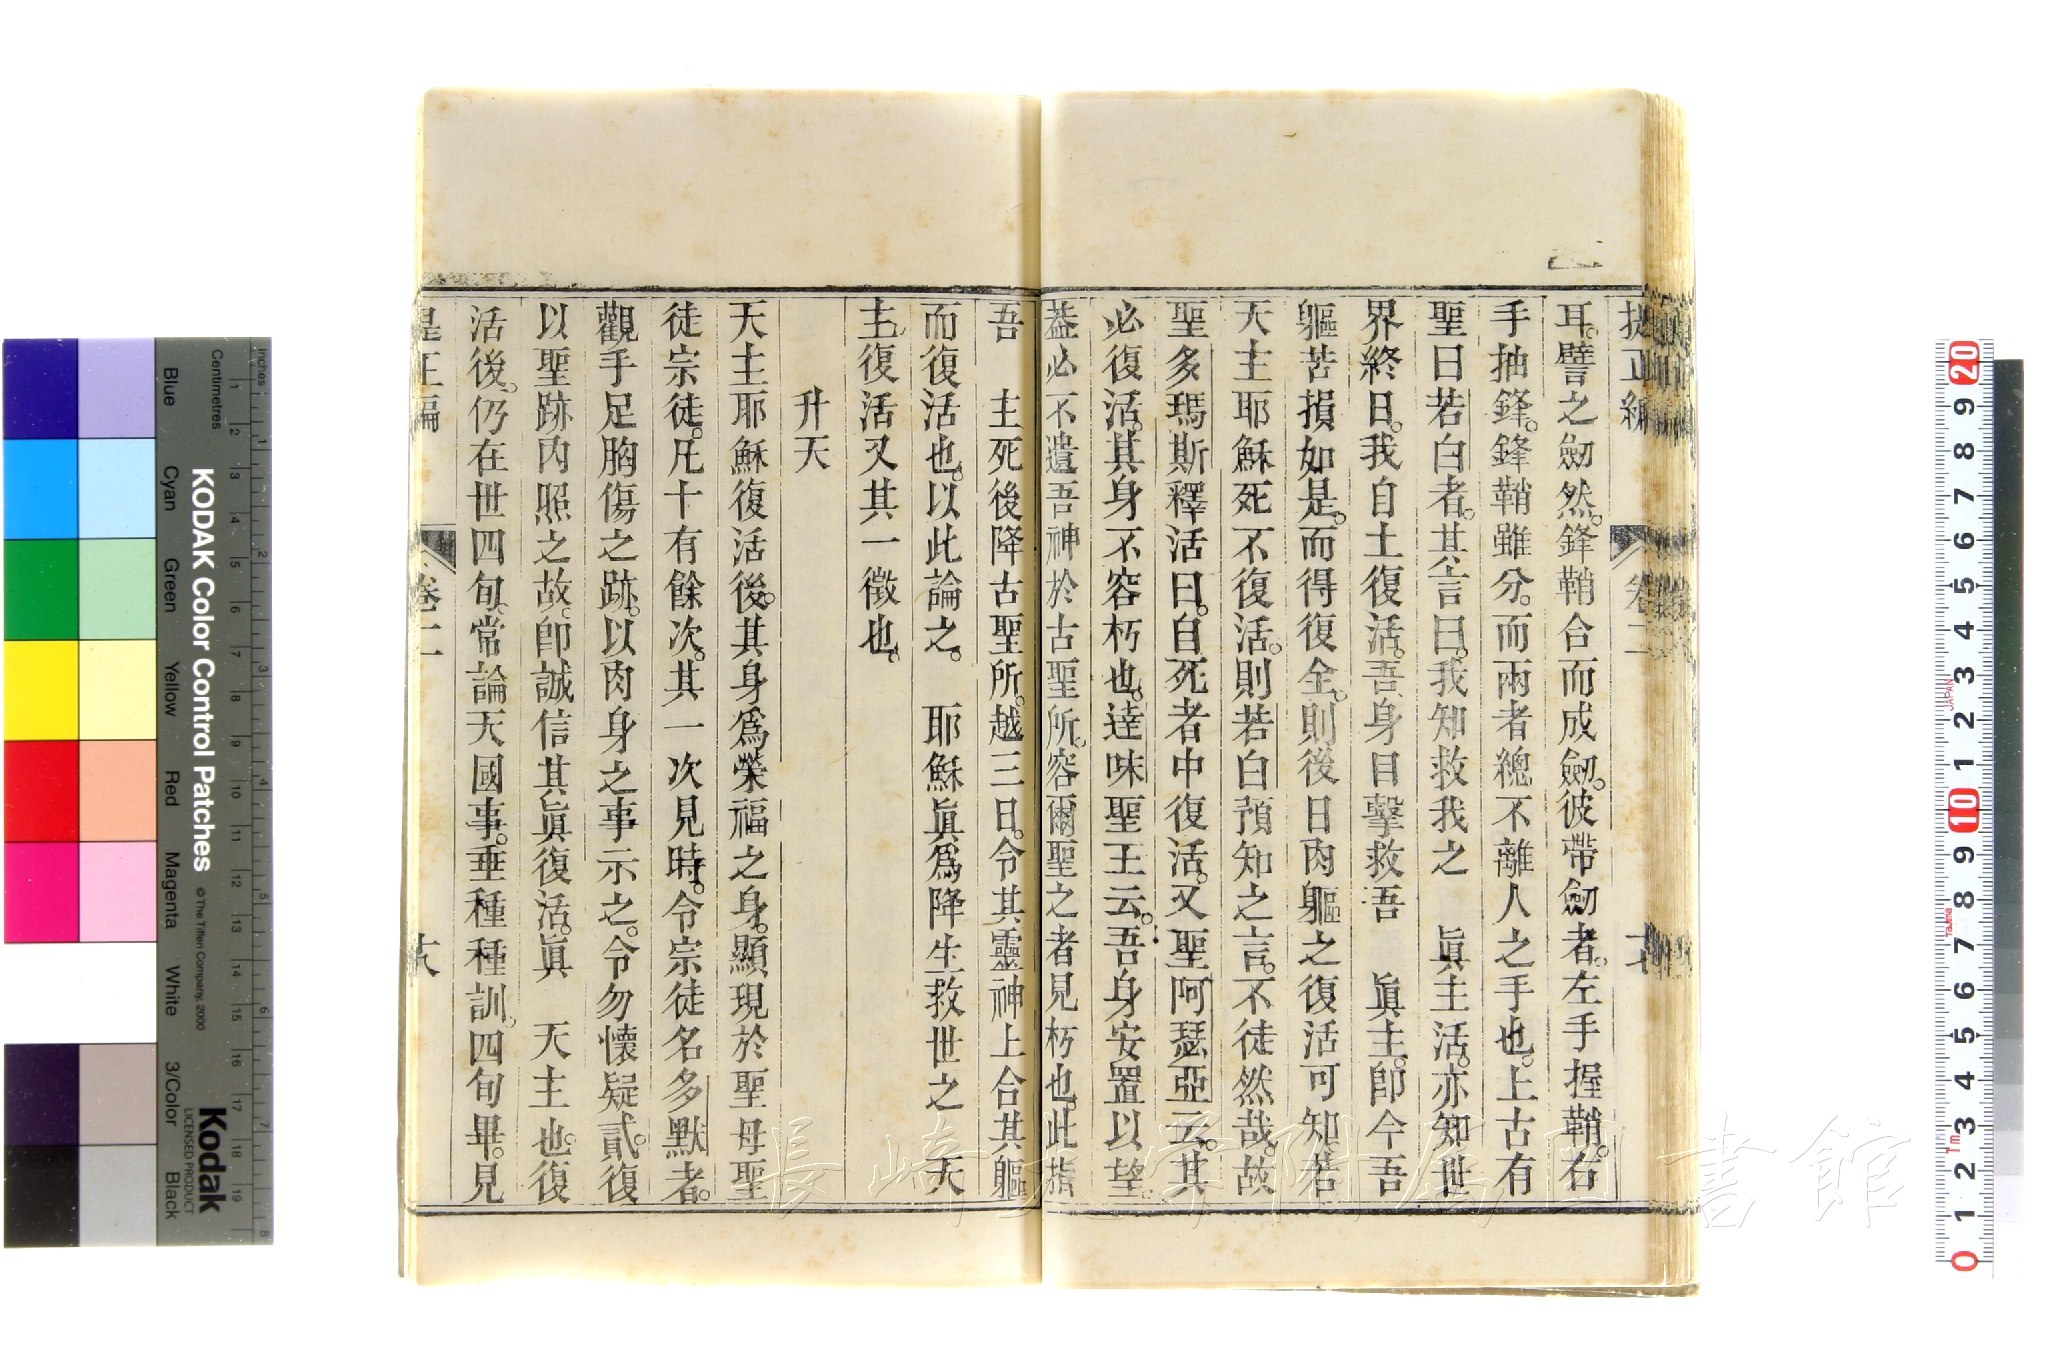 提正編 卷二
耳。譬之劒然。鋒鞘合而成劒。彼帶劒者。左手握鞘。右
手抽鋒。鋒鞘雖分。而兩者總不離人之手也。上古有
聖曰若白者。其言曰。我知救我之 眞主活。亦知世
界終日。我自土復活。吾身目擊救吾 眞主。卽今吾
軀苦損如是。而得復全。則後日肉軀之復活可知。若
天主耶穌死不復活。則若白預知之言。不徒然哉。故
聖多瑪斯釋活曰。自死者中復活。又聖呵瑟亞云。其
必復活。其身不容朽也。達味聖王云。吾身安置以望。
葢必不遺吾神於古聖所。容爾聖之者見朽也。此指
吾 主死後降古聖所。越三日。令其靈神上合其軀
而復活也。以此論之。 耶穌眞爲降生救世之 天
主。復活又其一徵也。
升天
天主耶穌復活後。其身爲榮福之身。顯現於聖母聖
徒宗徒。凡十有餘次。其一次見時。令宗徒名多默者。
觀手足胸傷之跡。以肉身之事示之。令勿懷疑貳。復
以聖跡內照之故。卽誠信其眞復活。眞 天主也。復
活後。仍在世四旬。常論天國事。垂種種訓。四旬畢。見
提正編 卷二 十八
KODAK Color Control Patches
© The Tiffen Company, 2000
Kodak
LICENSED PRODUCT
Inches
Centimetres
Blue
Cyan
Green
Yellow
Red
Magenta
White
3/Color
Black
長崎大学附属図書館
JAPAN